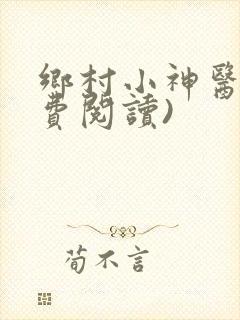 鄉村小神醫
費閱讀)
荀不言